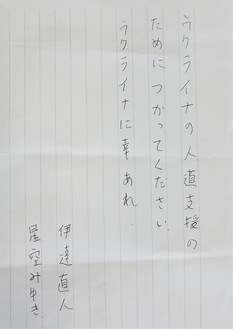 ウクライナの人道支援の
ためにつかってください
ウクライナに幸あれ.
伊達直人
星空みゆき